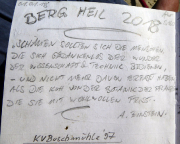 BERG HEIL 2018
SCHÄMEN SOLLTEN SICH DIE MENSCHEN,
DIE SICH GEDANKENLOS DER WUNDER
DER WISSENSCHAFT & TECHNIK BEDIENEN,
- UND NICHT MEHR DAVON ERFASST HABEN
ALS DIE KUH VON DER BOTANIK DER PFLANZEN,
DIE SIE MIT WOHLWOLLEN FRISST.
A. EINSTEIN.
KV Buschmühle '57